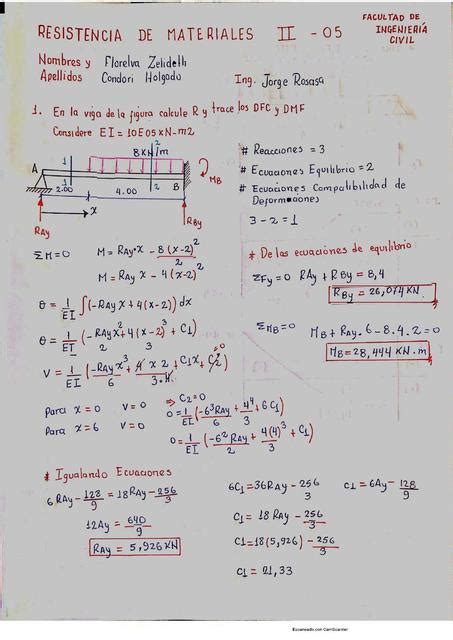 RESISTENCIA DE MATERIALES II - 05
FACULTAD DE
INGENIERÍA
CIVIL
Nombres y Florelva Zelidelli
Apellidos Condori Holgado
Ing. Jorge Rosasa
1. En la viga de la figura calcule R y trace los DFC y DMF
Considere EI = 10E05 KN-m2
8KN/m
1
2
A
B
1
2
2.00
4.00
MB
x
RAy
RBy
# Reacciones = 3
# Ecuaciones Equilibrio = 2
# Ecuaciones Compatibilidad de
Deformaciones
3 - 2 = 1
ΣM=0 M = RAy·x - 8(x-2)²/2
M = RAy·x - 4(x-2)²
* De las ecuaciones de equilibrio
ΣFy=0 RAy + RBy = 8,4
RBy = 26,074 KN.
θ = 1/EI ∫(-RAy x + 4(x-2)) dx
θ = 1/EI (-RAy x²/2 + 4(x-2)³/3 + C1)
ΣMB=0 MB + RAy·6 - 8.4.2 = 0
MB = 28,444 KN.m
Para x=0 V=0 ⇒ C2=0
0 = 1/EI (-6³RAy/6 + 4⁴/3 + 6C1)
Para x=6 V=0
0 = 1/EI (-6²RAy/2 + 4(4)³/3 + C1)
* Igualando Ecuaciones
6RAy - 128/9 = 18RAy - 256/3
12Ay = 640/9
RAy = 5,926 KN
6C1 = 36RAy - 256/3
C1 = 6Ay - 128/9
C1 = 18 RAy - 256/3
C1 = 18(5,926) - 256/3
C1 = 21,33
Escaneado con CamScanner